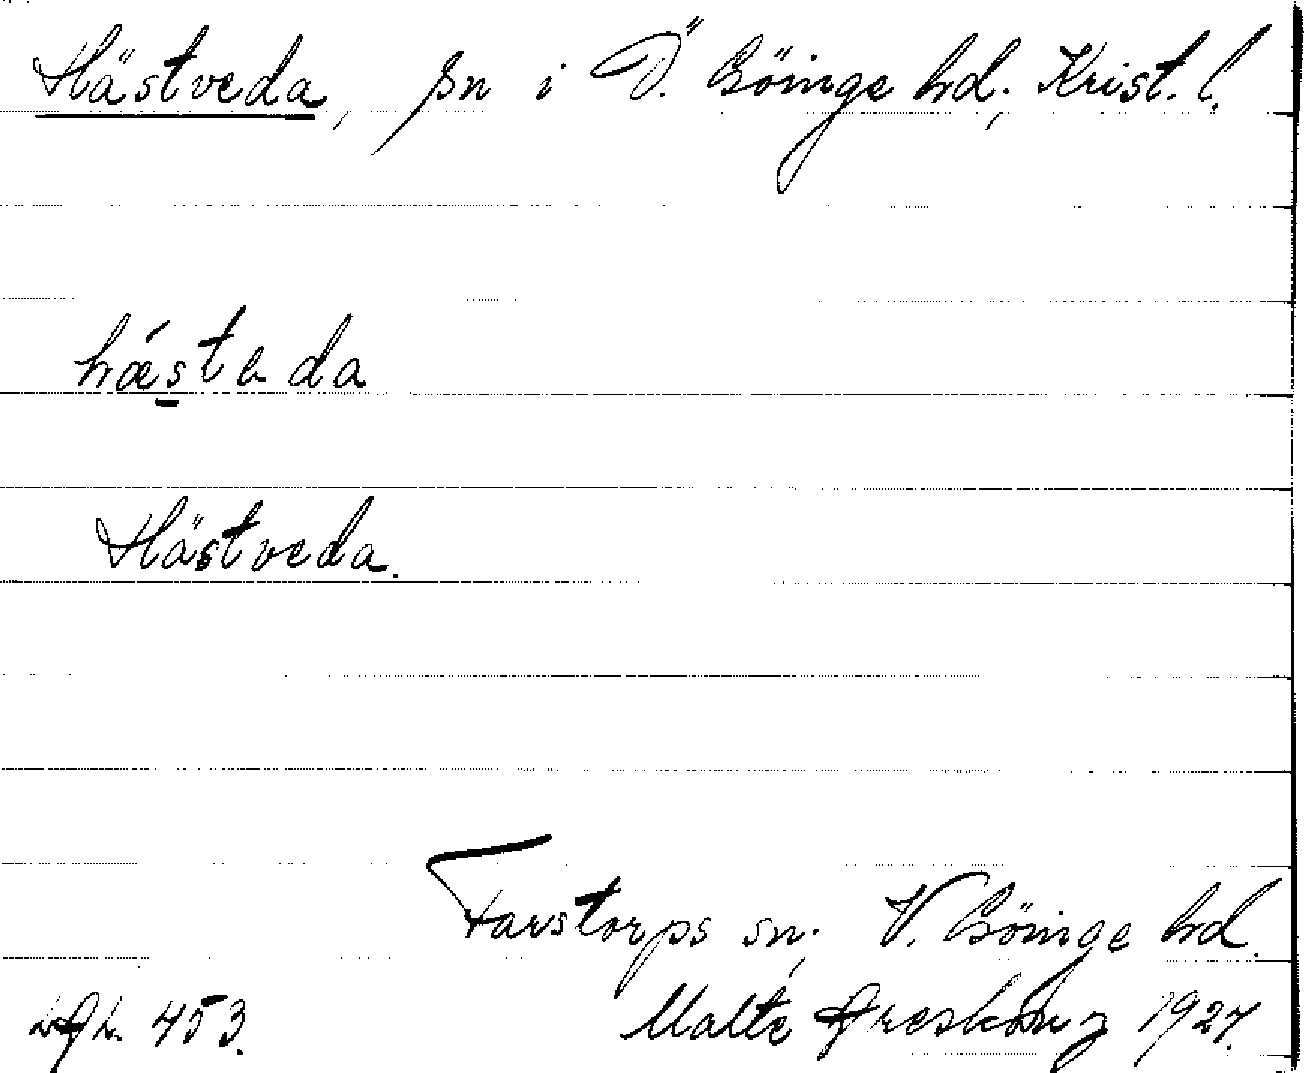 Hästveda, sn i Ö. Göinge hd, Krist. l.
hǽstada
Hästveda.
Farstorps sn. V. Göinge hd.
453. Malte Areskoug 1927.